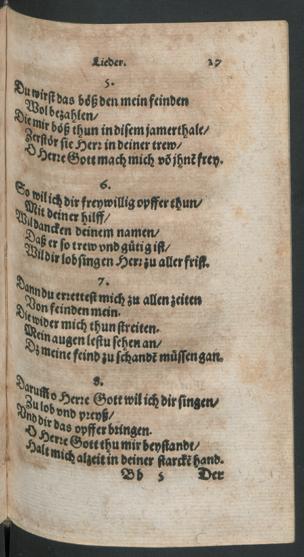 Lieder. 27
5.
Du wirst das böß den mein feinden
Wol bezahlen/
Die mir böß thun in disem jamerthale/
Zerstör sie Herr in deiner trew/
O Herre Gott mach mich vō jhnē frey.
6.
So wil ich dir freywillig opffer thun/
Mit deiner hilff/
Wil dancken deinem namen/
Daß er so trew vnd gütig ist/
Wil dir lobsingen Herr zu aller frist.
7.
Dann du errettest mich zu allen zeiten
Von feinden mein.
Die wider mich thun streiten.
Mein augen lestu sehen an/
Dz meine feind zu schandē müssen gan.
8.
Darumb o Herre Gott wil ich dir singen/
Zu lob vnd preyß/
Vnd dir das opffer bringen.
O Herre Gott thu mir beystandt/
Halt mich alzeit in deiner starckē hand.
Bb 5 Der